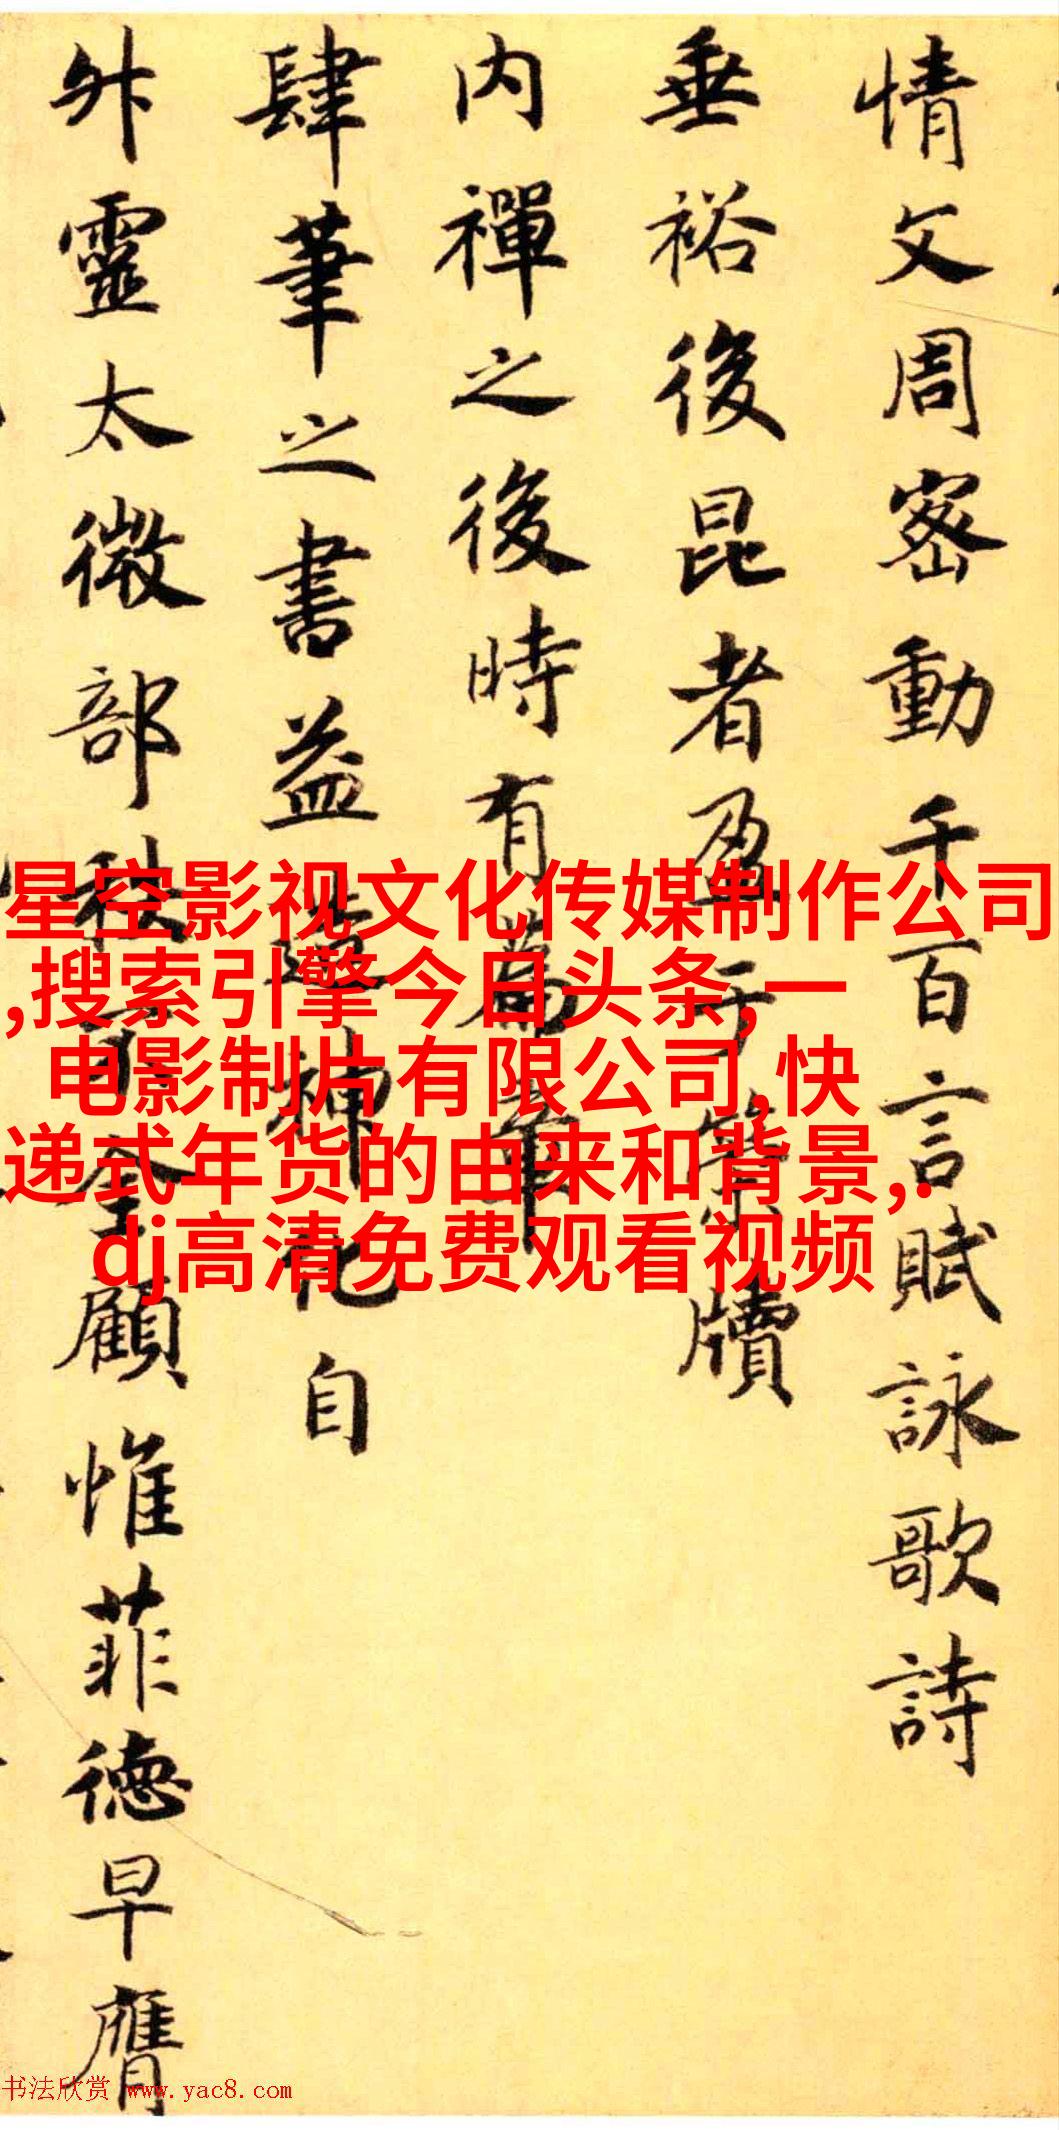 情文周密動千百言賦詠歌詩
垂裕後昆者盈于牘
内禪之後時有篇章
肆筆之書益神化自
靈太微部秩顧惟菲德早膺
星空影视文化传媒制作公司
,搜索引擎今日头条,一
电影制片有限公司,快
递式年货的由来和背景,.
dj高清免费观看视频
书法欣赏 www.yac8.com